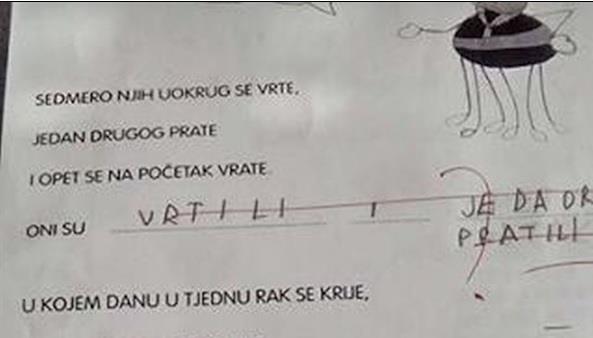 SEDMERO NJIH UOKRUG SE VRTE,
JEDAN DRUGOG PRATE
I OPET SE NA POČETAK VRATE.
ONI SU VRTILI I JE DA OR
PRATILI
U KOJEM DANU U TJEDNU RAK SE KRIJE,